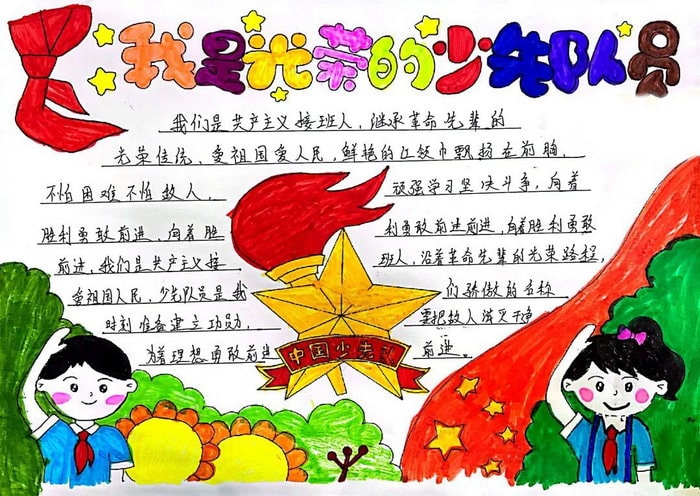 我是光荣的少先队员
我们是共产主义接班人,继承革命先辈的
光荣传统、爱祖国爱人民,鲜艳的红领巾飘扬在前胸、
不怕困难不怕敌人, 顽强学习坚决斗争,向着
胜利勇敢前进、向着胜 利勇敢前进前进,向着胜利勇敢
前进,我们是共产主义接 班人,沿着革命先辈的光荣路程,
爱祖国人民,少先队员是我 们骄傲的名称
时刻准备建立功勋、 要把敌人消灭干净
为着理想勇敢前进 前进。
中国少先队